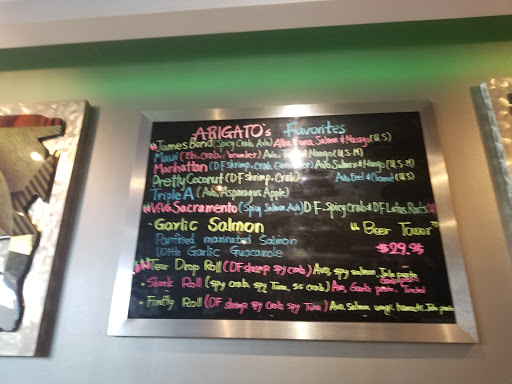 ARIGATO's Favorites
James Bond (Spicy Crab, Avo) Alba. Tuna, Salmon & Masago (U.S)
Maui (Ebi, Crab, Cucumber) Avo. Tuna & Mango (U.S.M)
Manhattan (DF shrimp, Crab, Cucumber) Avo. Salmon & Mango (U.S.M)
Pretty Coconut (DF shrimp, Crab) Avo. Eel & Coconut (U.S)
Triple A (Avo, Asparagus, Apple)
ViVa Sacramento (Spicy Salmon, Avo) D.F. Spicy Crab & DF Lotus Roots
- Garlic Salmon "Beer Tower"
Panfried marinated Salmon $29.95
With Garlic Guacamole
Tear Drop Roll (DF shrimp spy crab) Avo, spy salmon, Jala
- Shrek Roll (spy crab, spy Tuna, crab) Avo, Garlic Torched
- Firefly Roll (DF shrimp spy crab spy Tuna) Avo, Salmon